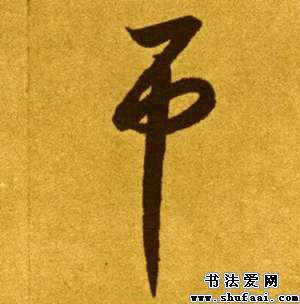 弔
书法爱网
www.shufaai.com